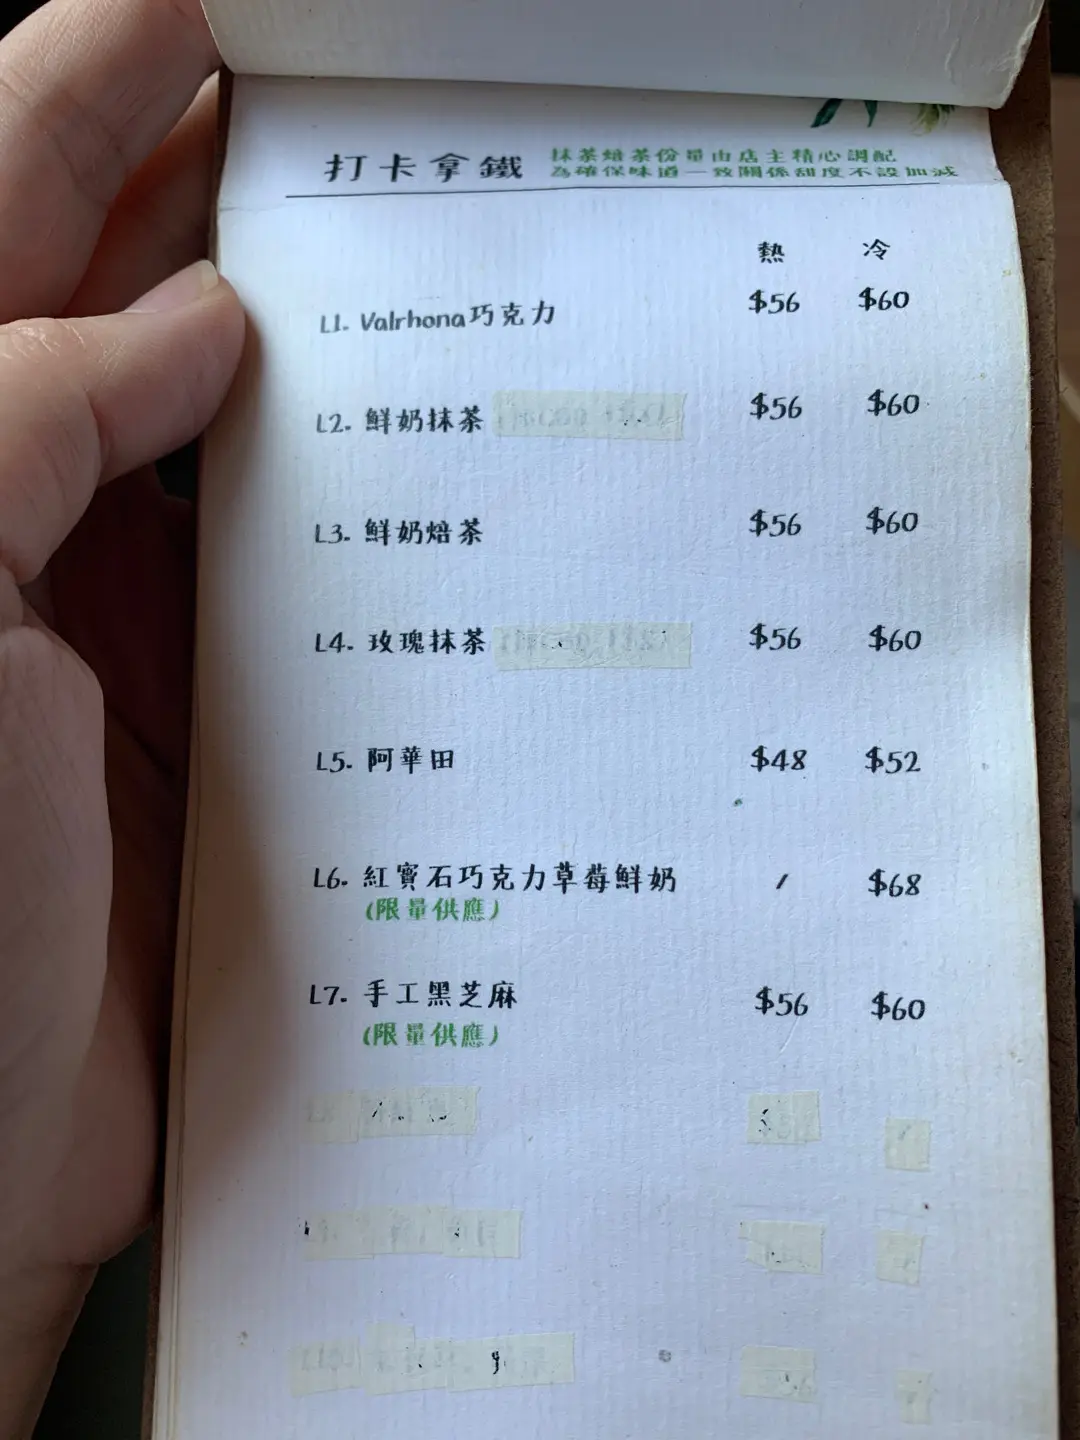 打卡拿鐵
抹茶焙茶份量由店主精心調配
為確保味道一致關係甜度不設加減
熱 冷
L1. Valrhona巧克力 $56 $60
L2. 鮮奶抹茶 $56 $60
L3. 鮮奶焙茶 $56 $60
L4. 玫瑰抹茶 $56 $60
L5. 阿華田 $48 $52
L6. 紅寶石巧克力草莓鮮奶 / $68
(限量供應)
L7. 手工黑芝麻 $56 $60
(限量供應)